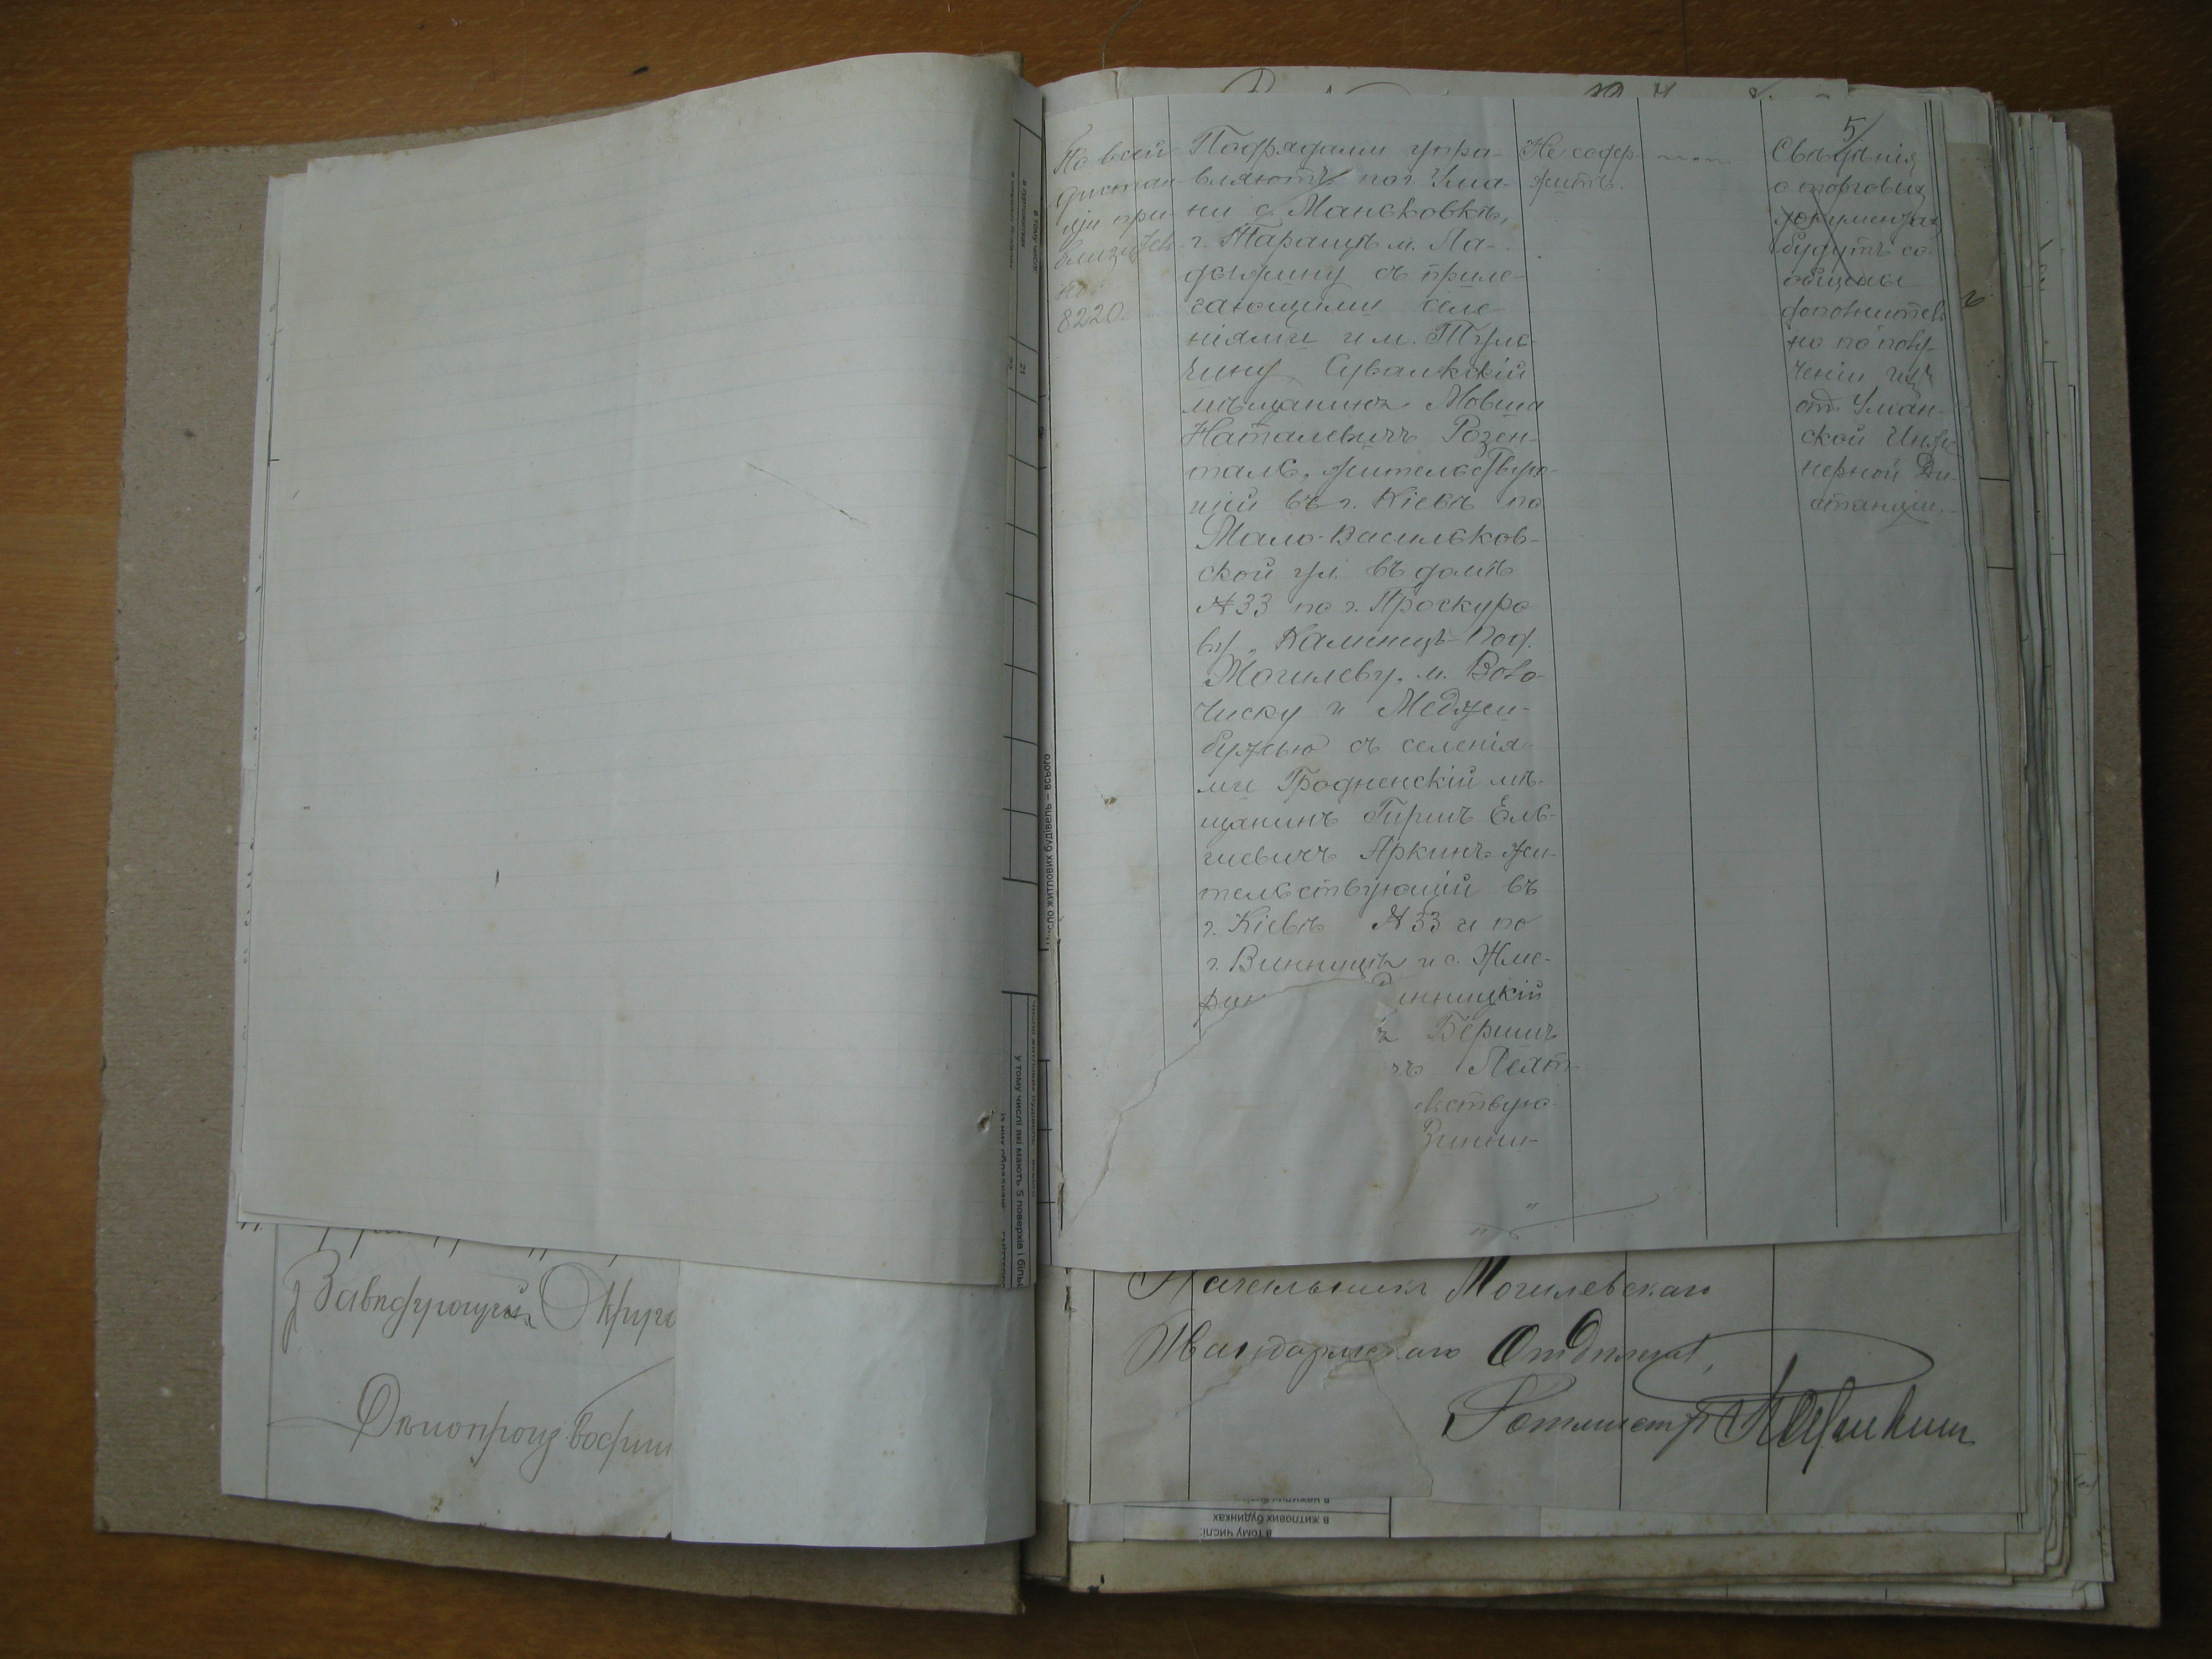 5
По всей
дистан-
ціи при-
близитель-
но
8220.
Подрядами упра-
вляютъ по г. Ума-
ни с. Маньковкѣ,
г. Таращѣ м. Ла-
дыжину съ приле-
гающими селе-
ніями и м. Туль-
чину Сувалкскій
мѣщанинъ Мовша
Наталевичъ Розен-
таль, жительствую-
щій въ г. Кіевѣ по
Мало-Васильков-
ской ул. въ домѣ
№ 33 по г. Проскуро
ву, Каменецъ-Под.
Могилеву, м. Воло-
чиску и Меджи-
бужью съ селенія-
ми Гродненскій мѣ-
щанинъ Гиршъ Ель-
Аркинъ жи-
тельствующій въ
г. Кіевѣ № 33 и по
г. Винницѣ и с. Жме-
рин
инницкій
ъ Бершъ
чъ
льствую-
Винни-
Не содер-
житъ.
Свѣдѣнія
о торговых
документах
будутъ со-
общены
дополнитель
но по полу-
ченіи их
от Уман-
ской Инже
нерной Ди-
станціи.
Завѣдующій Окруж
Дѣлопроизводи
Начальникъ Могилевскаго
Жандармскаго Отдѣленія,
Ротмистръ
Число житлових будівель – всього
у тому числі які мають 5 поверхів і біль
в тому числі
в житлових будинках
21